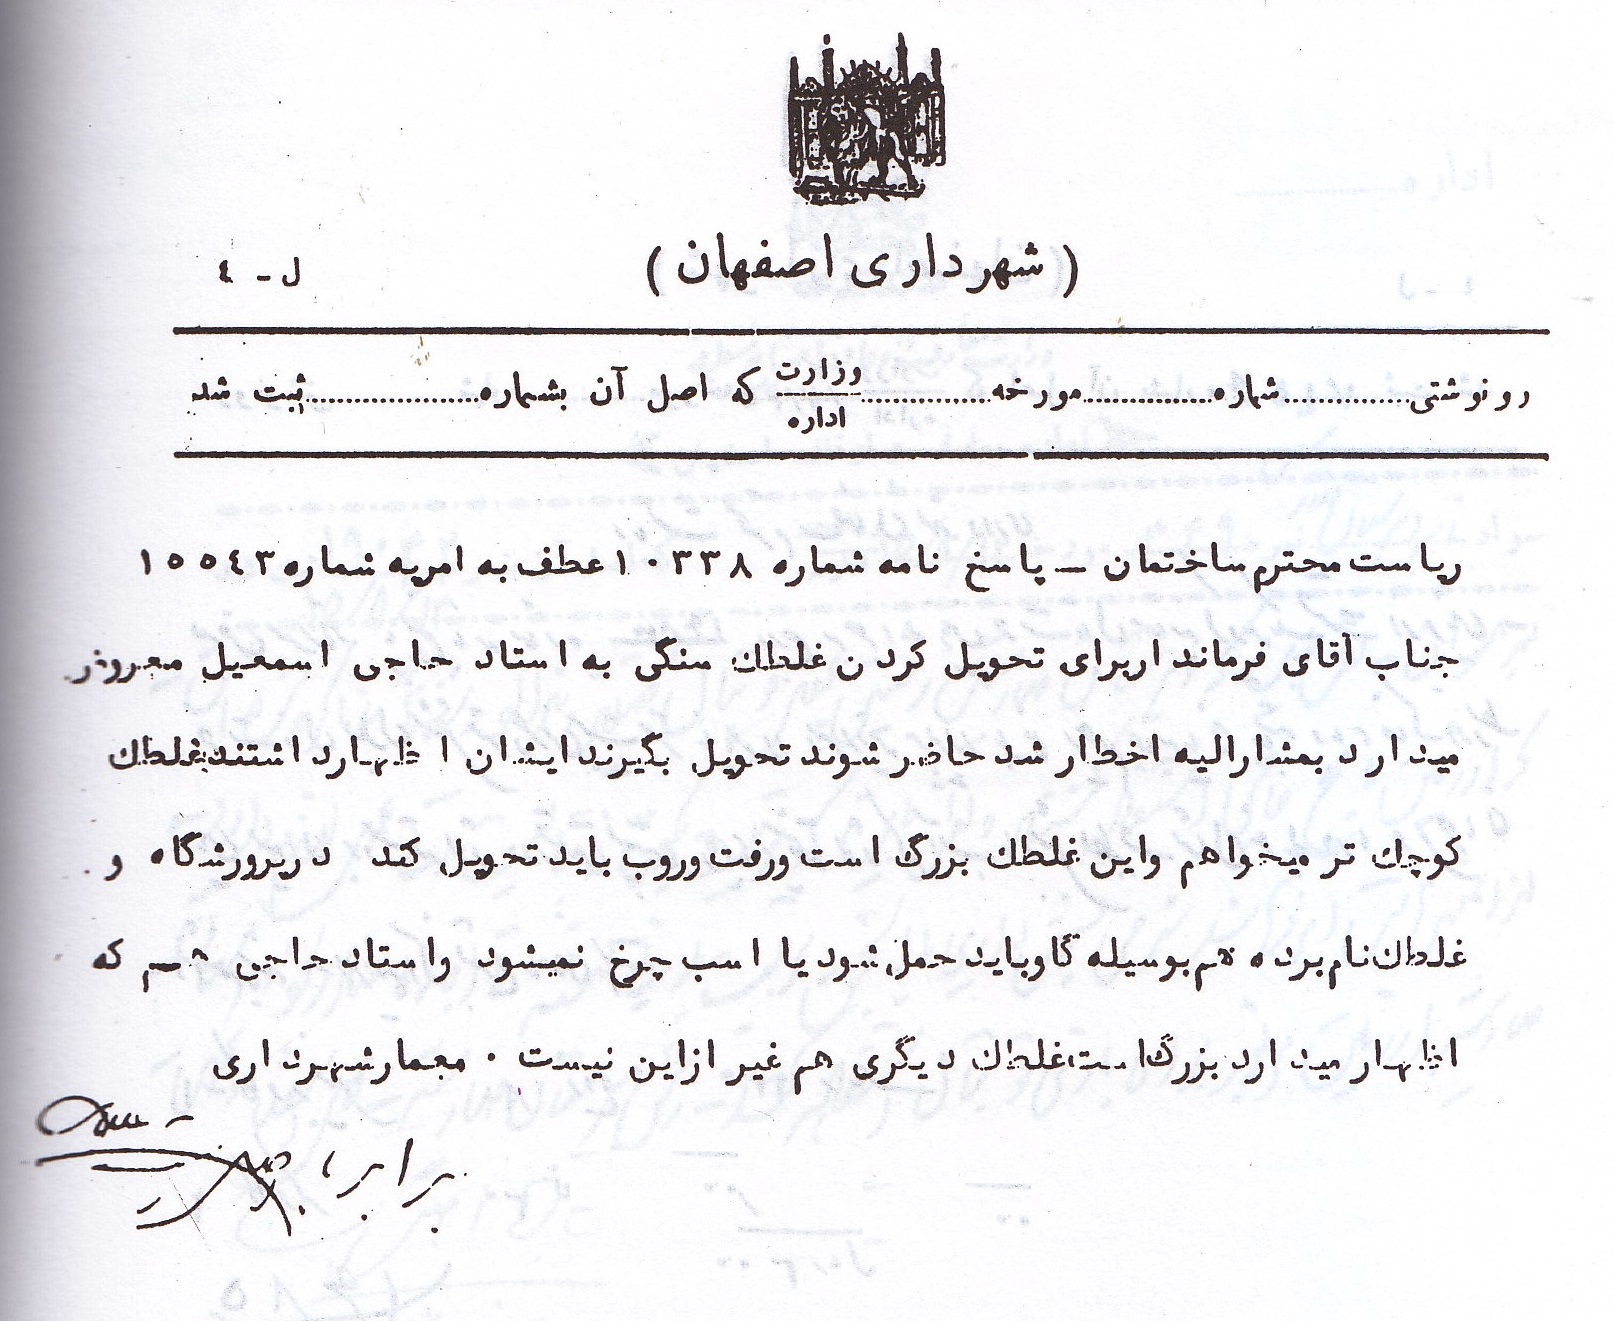 (شهرداری اصفهان)
ل - ٤
رونوشتی.............شماره.............مورخه.............وزارت که اصل آن بشماره.............ثبت شد
اداره
ریاست محترم ساختمان ــ پاسخ نامه شماره ۱۰۳۳۸ عطف به امریه شماره ۱٥٥٤۳
جناب آقای فرماندار برای تحویل کردن غلطك سنگی به استاد حاجی اسمعیل معروض
میدارد بمشارالیه اخطار شد حاضر شوند تحویل بگیرند ایشان اظهارداشتند غلطك
کوچك تر میخواهم واین غلطك بزرگ است ورفت وروب باید تحویل کند درپرورشگاه و
غلطك نام برده هم بوسیله گاو باید حمل شود یا اسب چرخ نمیشود واستاد حاجی هم که
اظهار میدارد بزرگ است غلطك دیگری هم غیر ازاین نیست ۰ معمارشهرداری
برابر